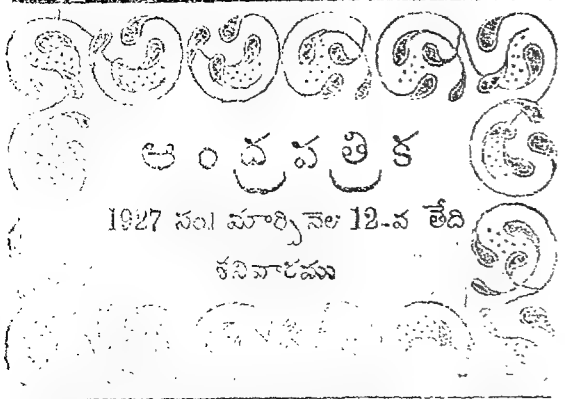 ఆంధ్రపత్రిక
1927 సం॥ మార్చినెల 12-వ తేది
శనివారము